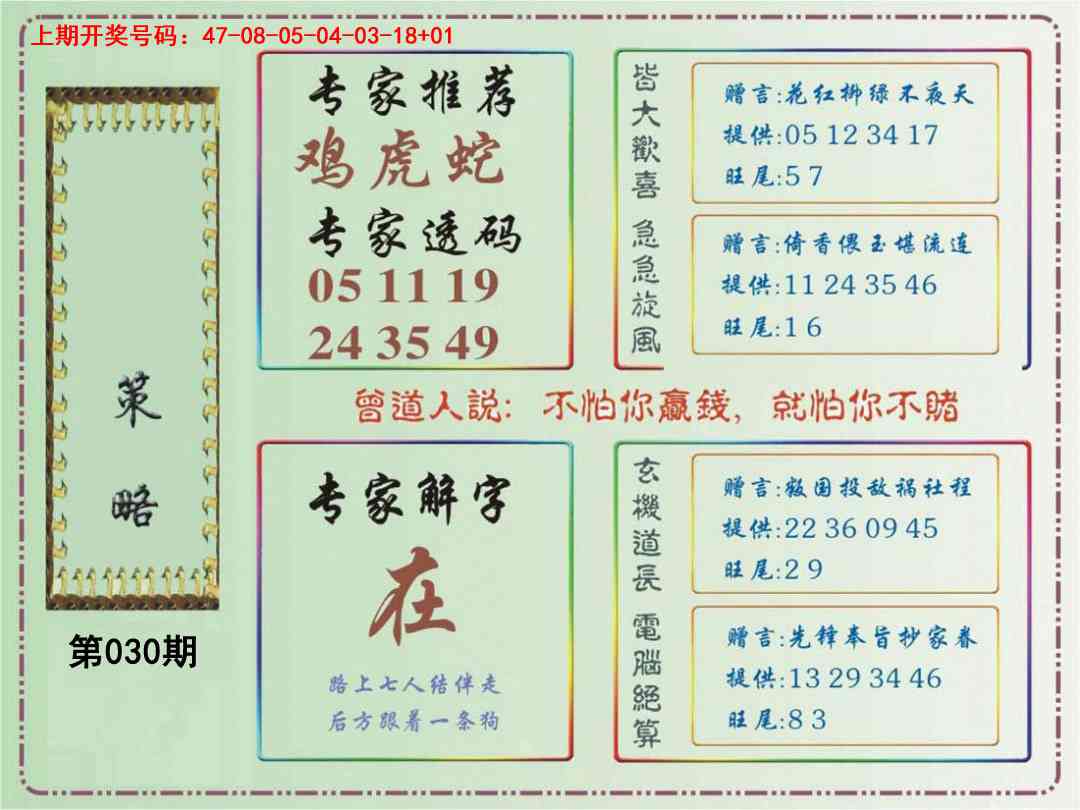 上期开奖号码：47-08-05-04-03-18+01
策略
第030期
专家推荐
鸡虎蛇
专家透码
05 11 19
24 35 49
皆大歡喜
赠言:花红柳绿不夜天
提供:05 12 34 17
旺尾:5 7
急急旋風
赠言:倚香偎玉堪流连
提供:11 24 35 46
旺尾:1 6
曾道人説：不怕你贏錢，就怕你不賭
专家解字
在
路上七人结伴走
后方跟着一条狗
玄機道長
赠言:叛国投敌祸社程
提供:22 36 09 45
旺尾:2 9
電腦絕算
赠言:先锋奉旨抄家眷
提供:13 29 34 46
旺尾:8 3